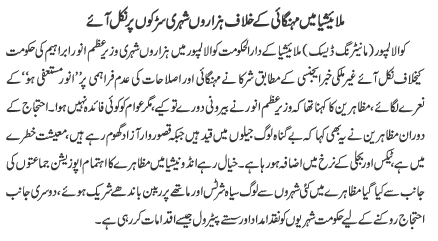 ملائیشیا میں مہنگائی کے خلاف ہزاروں شہری سڑکوں پر نکل آئے
کوالالمپور (مانیٹرنگ ڈیسک) ملائیشیا کے دارالحکومت کوالالمپور میں ہزاروں شہری وزیر عظم انور ابراہیم کی حکومت
کیخلاف نکل آئے غیر ملکی خبر ایجنسی کے مطابق شرکا نے مہنگائی اور اصلاحات کی عدم فراہمی پر ”انور مستعفی ہو“ کے
نعرے لگائے، مظاہرین کا کہنا تھا کہ وزیر عظم انور نے بیرونی دورے تو کیے، مگر عوام کو کوئی فائدہ نہیں ہوا۔ احتجاج کے
دوران مظاہرین نے یہ بھی کہا کہ بے گناہ لوگ جیلوں میں قید ہیں جبکہ قصور وار آزاد گھوم رہے ہیں، معیشت خطرے
میں ہے، ٹیکس اور بجلی کے نرخ میں اضافہ ہو رہا ہے۔ خیال رہے انڈونیشیا میں مظاہرے کا اہتمام اپوزیشن جماعتوں کی
جانب سے کیا گیا مظاہرے میں کئی شہروں سے لوگ سیاہ شرٹس اور ماتھے پر ربن باندھے شریک ہوئے، دوسری جانب
احتجاج روکنے کے لیے حکومت شہریوں کو نقد امداد اور سستے پیٹرول جیسے اقدامات کر رہی ہے۔